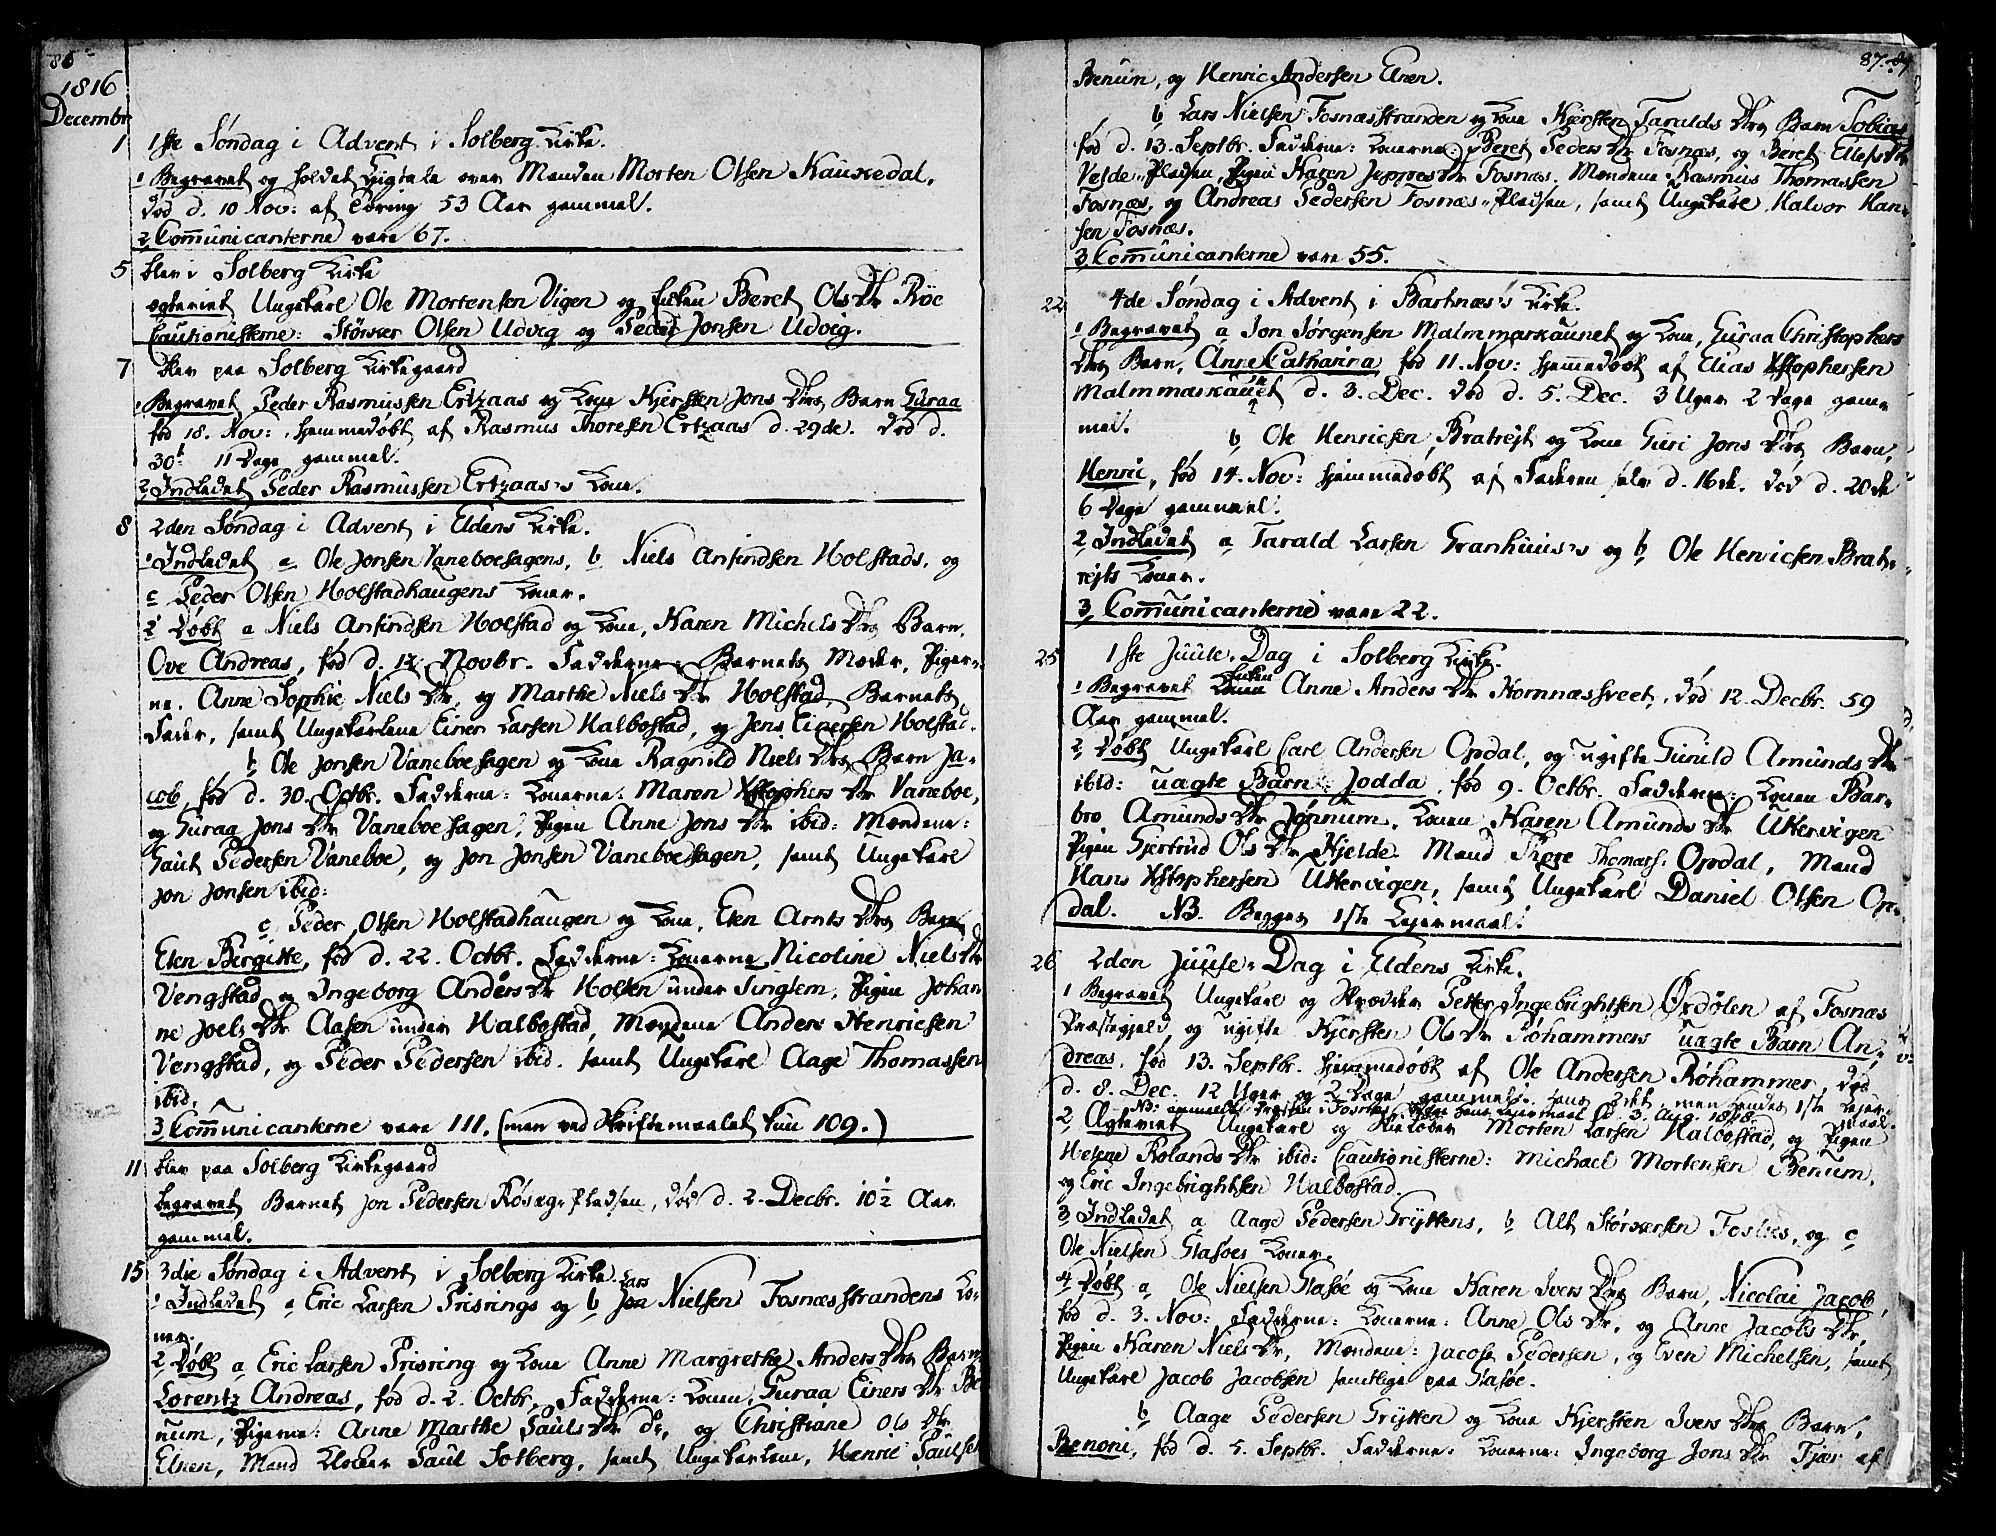 86
1816
Decembr
1 1ste Søndag i Advent i Solberg Kirke.
1 Begravet og holdet Ligtale over Manden Morten Olsen Kauxedal,
død d. 10 Nov: af Tæring 53 Aar gammel.
2 Com̄unicanterne vare 67.
5 blev i Solberg Kirke
egteviet Ungekarl Ole Mortensen Vigen og Enken Beret Ols Dr Røe
Cautionisterne: Størker Olsen Udvig og Peder Jonsen Udvig.
7 blev paa Solberg Kirkegaard
1 Begravet Peder Rasmussen Ertzaas og Kone Kjersten Jons Drs Barn Guraa
fød 18. Nov: hjemmedøbt af Rasmus Thoresen Ertzaas d. 29de. død d.
30t 11 Dage gammel.
2 Indledet Peder Rasmussen Ertzaas's Kone.
8 2den Søndag i Advent i Eldens Kirke.
1 Indledet a Ole Jonsen Vaneboehagens, b Niels Anfindsen Holstads, og
c Peder Olsen Holstadhaugens Koner.
2 Døbt a Niels Anfindsen Holstad og Kone, Karen Michels Drs Barn,
Ove Andreas, fød d. 12 Novbr. Fadderne: Barnets Moder, Piger-
ne, Anne Sophie Niels Dr, og Marthe Niels Dr Holstad, Barnets
Fader, samt Ungekarlene Einer Larsen Halbostad, og Jens Einersen Holstad.
b Ole Jonsen Vaneboehagen og Kone Ragnild Niels Drs Barn Ja-
cob, fød d. 30. Octbr. Fadderne: Konerne: Maren Xstophers Dr Vaneboe,
og Guraa Jons Dr Vaneboehagen, Pigen Anne Jons Dr ibid: Mændene:
Gaut Pedersen Vaneboe, og Jon Jonsen Vaneboehagen, samt Ungekarl
Jon Jonsen ibid:
c Peder Olsen Holstadhaugen og Kone, Elen Arnts Drs Barn
Elen Birgitte, fød d. 22. Octbr. Fadderne: Konerne Nicoline Niels Dr
Vengstad, og Ingeborg Anders Dr Holsen under Singlem, Pigen Johan
ne Joels Dr Aasen under Halbostad, Mændene Anders Henricsen
Vengstad, og Peder Pedersen ibid. samt Ungekarl Aage Thomassen
ibid.
3 Com̄unicanterne vare 111. (men ved Skriftemaalet kun 109.)
11 blev paa Solberg Kirkegaard
begravet Barnet Jon Pedersen Røseg-Pladsen, død d. 2. Decbr. 10½ Aar
gammel.
15 3die Søndag i Advent i Solberg Kirke.
1 Indledet a Eric Larsen Prisrings og b Lars Nielsen Fosnæsstrandens Ko-
ner.
2 Døbt a Eric Larsen Prisring og Kone Anne Margrethe Anders Drs Barn
Lorentz Andreas, fød d. 2. Octbr. Fadderne: Konen, Guraa Einers Dr Be
num, Pigerne: Anne Marthe Pauls Dr og Christiane Ols Dr
Elnen, Mand Klokker Paul Solberg, samt Ungekarlene, Henric Paulsen
87. 87
Benum, og Henric Andersen Elnen.
b Lars Nielsen Fosnæsstranden og Kone Kjersten Taralds Drs Barn Tobias
fød d. 13. Septbr. Fadderne: Konerne: Beret Peders Dr Fosnæs, og Beret Ellefs Dr
Velde-Pladsen, Pigen Karen Jeppes Dr Fosnæs. Mændene Rasmus Thomassen
Fosnæs, og Andreas Pedersen Fosnæs-Pladsen, samt Ungekarl, Halvor Han-
sen Fosnæs.
3 Com̄unicanterne vare 55.
22 4de Søndag i Advent i Bartnæs's Kirke.
1 Begravet a Jon Jørgensen Malmmarkaunet og Kone, Guraa Christophers
Drs Barn, Anne Catharina, fød 11. Nov: hjemmedøbt af Elias Xstophersen
Malmmarkaunet d. 3. Dec. død d. 5. Dec. 3 Uger 2 Dage gam-
mel.
b Ole Henricsen Bratrejt og Kone Guri Jons Drs Barn,
Henric, fød 14. Nov: hjemmedøbt af Faderen selv d. 16de. død d. 20de
6 Dage gammel.
2 Indledet a Tarald Larsen Granhuus's og b Ole Henricsen Brat-
rejts Koner.
3 Com̄unicanterne vare 22.
25 1ste Juule-Dag i Solberg Kirke.
1 Begravet Enken Anne Anders Dr Homnæshveet, død 12. Decbr. 59
Aar gammel.
2 Døbt Ungekarl Carl Andersen Opdal, og ugifte Gunild Amunds Dr
ibid: uægte Barn: Jodda, fød 9. Octbr. Fadderne: Konen Bar-
bro Amunds Dr Jønnum, Konen Karen Amunds Dr Uttervigen
Pigen Gjertrud Ols Dr Hjelde. Mand Thore Thomass. Opdal, Mand
Hans Xstophersen Uttervigen, samt Ungekarl Daniel Olsen Op-
dal. NB. Begges 1ste Lejermaal.
26 2den Juule-Dag i Eldens Kirke.
1 Begravet Ungekarl og Skrædder Petter Ingebrightsen Ørdølen af Fosnæs
Præstegjeld og ugifte Kjersten Ols Dr Røhammers uægte Barn An-
dreas, fød 13. Septbr. hjemmedøbt af Ole Andersen Røhammer, død
d. 8. Dec. 12 Uger og 2 Dage gammel: hans 2det, men hendes 1ste Lejer-
maal.
2 Ægteviet Ungekarl og Skieløber Morten Larsen Halbostad, og Pigen
Helene Rolands Dr ibid: Cautionisterne: Michael Mortensen Benum,
og Eric Ingebrightsen Halbostad.
3 Indledet a Aage Pedersen Gryttens, b Alt Størkersen Foslies, og c
Ole Nielsen Glasøes Koner.
4 Døbt a Ole Nielsen Glasøe og Kone Karen Ivers Drs Barn, Nicolai Jacob,
fød d. 3. Nov: Fadderne: Konerne: Anne Ols Dr, og Anne Jacobs Dr,
Pigen Karen Niels Dr, Mændene: Jacob Pedersen, og Even Michelsen, samt
Ungekarl Jacob Jacobsen samtlige paa Glasøe.
b Aage Pedersen Grytten og Kone Kjersten Ivers Drs Barn,
Benoni, fød d. 5. Septbr. Fadderne: Konerne: Ingeborg Jons Dr Fjær af